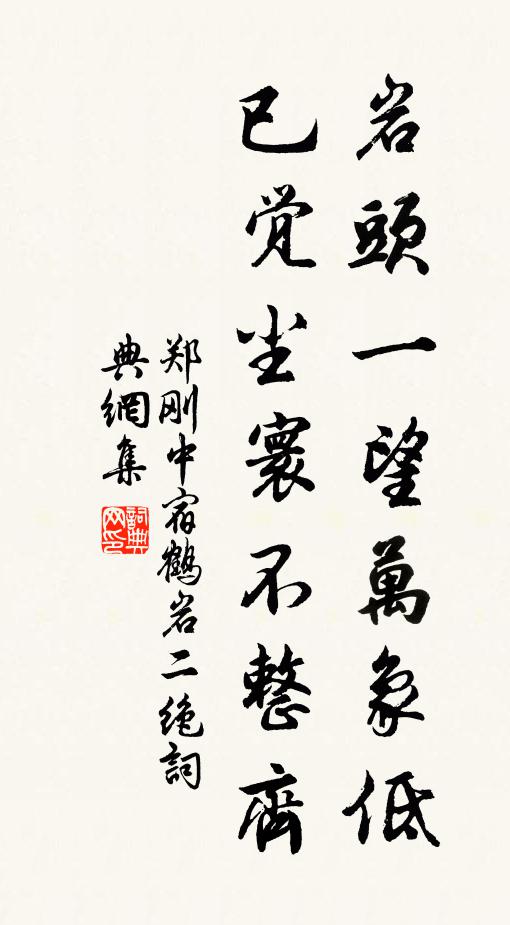 岩頭一望萬象低
已覚尘寰不整齊
郑刚中宿鶴岩二绝詞
典網集
詞典
网印